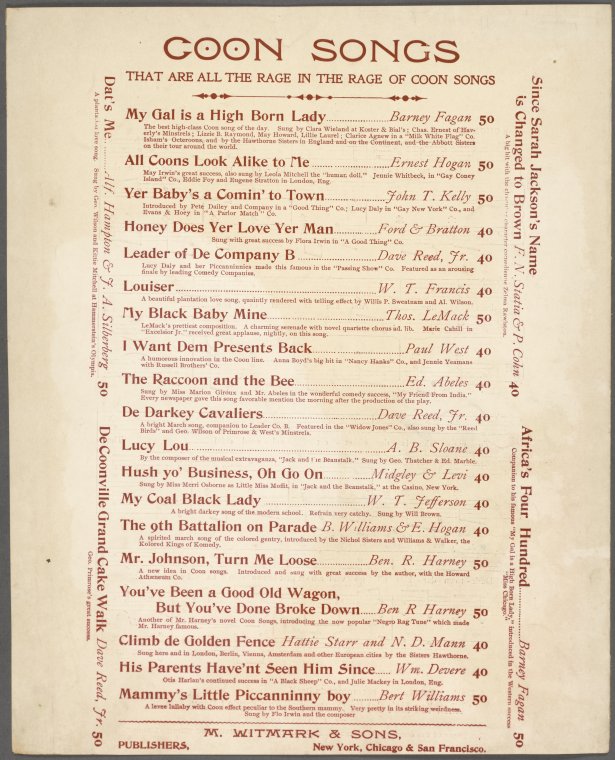 COON SONGS
THAT ARE ALL THE RAGE IN THE RAGE OF COON SONGS
My Gal is a High Born Lady Barney Fagan 50
The best high-class Coon song of the day. Sung by Clara Wieland at Koster & Bial's; Chas. Ernest of Hav-
erly's Minstrels; Lizzie B. Raymond, May Howard, Lillie Laurel; Clarice Agnew in a "Milk White Flag" Co.
Isham's Octoroons, and by the Hawthorne Sisters in England and on the Continent, and the Abbott Sisters
on their tour around the world.
All Coons Look Alike to Me Ernest Hogan 50
May Irwin's great success, also sung by Leola Mitchell the "human doll." Jennie Whitbeck, in "Gay Coney
Island" Co., Eddie Foy and Eugene Stratton in London, Eng.
Yer Baby's a Comin' to Town John T. Kelly 50
Introduced by Pete Dailey and Company in a "Good Thing" Co.; Lucy Daly in "Gay New York" Co., and
Evans & Hoey in "A Parlor Match" Co.
Honey Does Yer Love Yer Man Ford & Bratton 40
Sung with great success by Flora Irwin in "A Good Thing" Co.
Leader of De Company B Dave Reed, Jr. 40
Lucy Daly and her Piccaninnies made this famous in the "Passing Show" Co. Featured as an arousing
finale by leading Comedy Companies.
Louiser W. T. Francis 40
A beautiful plantation love song, quaintly rendered with telling effect by Willis P. Sweatnam and Al. Wilson.
My Black Baby Mine Thos. LeMack 50
LeMack's prettiest composition. A charming serenade with novel quartette chorus ad. lib. Marie Cahill in
"Excelsior Jr." received great applause, nightly, on this song.
I Want Dem Presents Back Paul West 40
A humorous innovation in the Coon line. Anna Boyd's big hit in "Nancy Hanks" Co., and Jennie Yeamans
with Russell Brothers' Co.
The Raccoon and the Bee Ed. Abeles 40
Sung by Miss Marion Giroux and Mr. Abeles in the wonderful comedy success, "My Friend From India."
Every newspaper gave this song favorable mention the morning after the production of the play.
De Darkey Cavaliers Dave Reed, Jr. 40
A bright March song, companion to Leader Co. B. Featured in the "Widow Jones" Co., also sung by the "Reed
Birds" and Geo. Wilson of Primrose & West's Minstrels.
Lucy Lou A. B. Sloane 40
By the composer of the musical extravaganza, "Jack and the Beanstalk." Sung by Geo. Thatcher & Ed. Marble.
Hush yo' Business, Oh Go On Midgley & Levi 40
Sung by Miss Merri Osborne as Little Miss Moffit, in "Jack and the Beanstalk," at the Casino, New York.
My Coal Black Lady W. T. Jefferson 40
A bright darkey song of the modern school. Refrain very catchy. Sung by Will Brown.
The 9th Battalion on Parade B. Williams & E. Hogan 40
A spirited march song of the colored gentry, introduced by the Nichol Sisters and Williams & Walker, the
Kolored Kings of Komedy.
Mr. Johnson, Turn Me Loose Ben. R. Harney 50
A new idea in Coon songs. Introduced and sung with great success by the author, with the Howard
Athenæum Co.
You've Been a Good Old Wagon,
But You've Done Broke Down Ben R Harney 50
Another of Mr. Harney's novel Coon Songs, introducing the now popular "Negro Rag Tune" which made
Mr. Harney famous.
Climb de Golden Fence Hattie Starr and N. D. Mann 40
Sung here and in London, Berlin, Vienna, Amsterdam and other European cities by the Sisters Hawthorne.
His Parents Have'nt Seen Him Since Wm. Devere 40
Otis Harlan's continued success in "A Black Sheep" Co., and Julie Mackey in London, Eng.
Mammy's Little Piccanninny boy Bert Williams 50
A levee lullaby with Coon effect peculiar to the Southern mammy. Very pretty in its striking weirdness.
Sung by Flo Irwin and the composer
M. WITMARK & SONS,
PUBLISHERS, New York, Chicago & San Francisco.
Dat's Me Alf. Hampton & J. A. Silberberg 50
A plantation love song. Sung by Geo. Wilson and Kittie Mitchell at Hammerstein's Olympia.
De Coonville Grand Cake Walk Dave Reed, Jr. 50
Geo. Primrose's great success.
Since Sarah Jackson's Name
is Changed to Brown F. N. Statia & P. Cohn 40
A big hit with the character comedienne Zelma Rawlston.
Africa's Four Hundred Barney Fagan 50
Companion to his famous "My Gal is a High Born Lady," introduced in the Western success
"Miss Chicago".